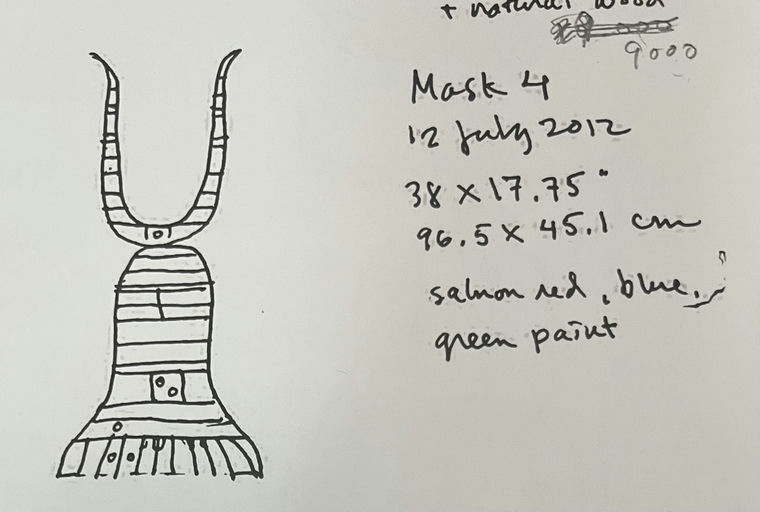 + natural wood
9000
Mask 4
12 July 2012
38 x 17.75"
96.5 x 45.1 cm
salmon red, blue,
green paint